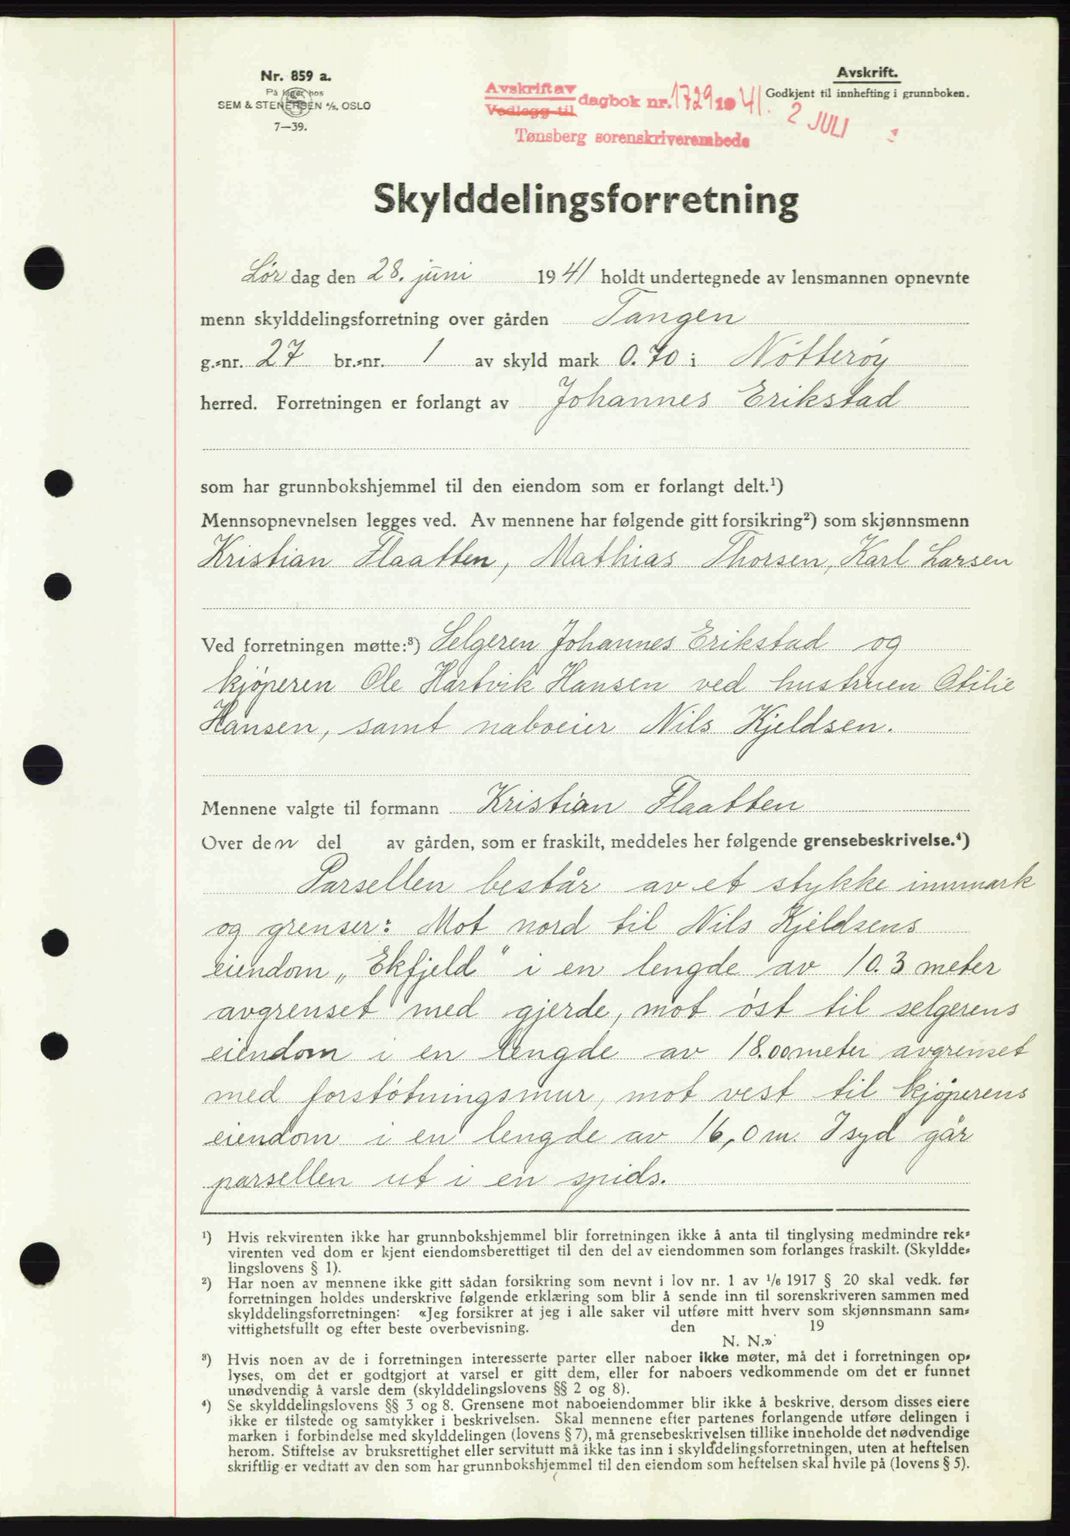 Nr. 859 a.
På lager hos
SEM & STENERSEN A/S, OSLO
7—39.
Avskrift av
Vedlegg til
dagbok nr. 1729 1941.
Tønsberg sorenskriverembede
2 JULI
Avskrift.
Godkjent til innhefting i grunnboken.
Skylddelingsforretning
Lørdag den 28. juni 1941 holdt undertegnede av lensmannen opnevnte
menn skylddelingsforretning over gården Tangen
g.-nr. 27 br.-nr. 1 av skyld mark 0.70 i Nøtterøy
herred. Forretningen er forlangt av Johannes Erikstad
som har grunnbokshjemmel til den eiendom som er forlangt delt.¹)
Mennsopnevnelsen legges ved. Av mennene har følgende gitt forsikring²) som skjønnsmenn
Kristian Flaatten, Mathias Thorsen, Karl Larsen
Ved forretningen møtte:³) Selgeren Johannes Erikstad og
kjøperen Ole Hartvik Hansen ved hustruen Otilie
Hansen, samt naboeier Nils Kjeldsen.
Mennene valgte til formann Kristian Flaatten
Over den del av gården, som er fraskilt, meddeles her følgende grensebeskrivelse.⁴)
Parsellen består av et stykke innmark
og grenser: Mot nord til Nils Kjeldsens
eiendom „Ekfjeld" i en lengde av 10.3 meter
avgrenset med gjerde, mot øst til selgerens
eiendom i en lengde av 18.00 meter avgrenset
med forstøtningsmur, mot vest til kjøperens
eiendom i en lengde av 16,0 m. I syd går
parsellen ut i en spids.
¹) Hvis rekvirenten ikke har grunnbokshjemmel blir forretningen ikke å anta til tinglysing medmindre rek-
virenten ved dom er kjent eiendomsberettiget til den del av eiendommen som forlanges fraskilt. (Skyldde-
lingslovens § 1).
²) Har noen av mennene ikke gitt sådan forsikring som nevnt i lov nr. 1 av 1/6 1917 § 20 skal vedk. før
forretningen holdes underskrive følgende erklæring som blir å sende inn til sorenskriveren sammen med
skylddelingsforretningen: «Jeg forsikrer at jeg i alle saker vil utføre mitt hverv som skjønnsmann sam-
vittighetsfullt og efter beste overbevisning. den 19
N. N.»
³) Hvis noen av de i forretningen interesserte parter eller naboer ikke møter, må det i forretningen op-
lyses, om det er godtgjort at varsel er gitt dem, eller for naboers vedkommende om det er funnet
unødvendig å varsle dem (skylddelingslovens §§ 2 og 8).
⁴) Se skylddelingslovens §§ 3 og 8. Grensene mot naboeiendommer blir ikke å beskrive, dersom disses eiere
ikke er tilstede og samtykker i beskrivelsen. Skal mennene efter partenes forlangende utføre delingen i
marken i forbindelse med skylddelingen (lovens § 7), må grensebeskrivelsen tillike inneholde det nødvendige
herom. Stiftelse av bruksrettighet eller servitutt må ikke tas inn i skylddelingsforretningen, uten at heftelsen
skriftlig er vedtatt av den som har grunnbokshjemmel til den eiendom som heftelsen skal hvile på (lovens § 5).